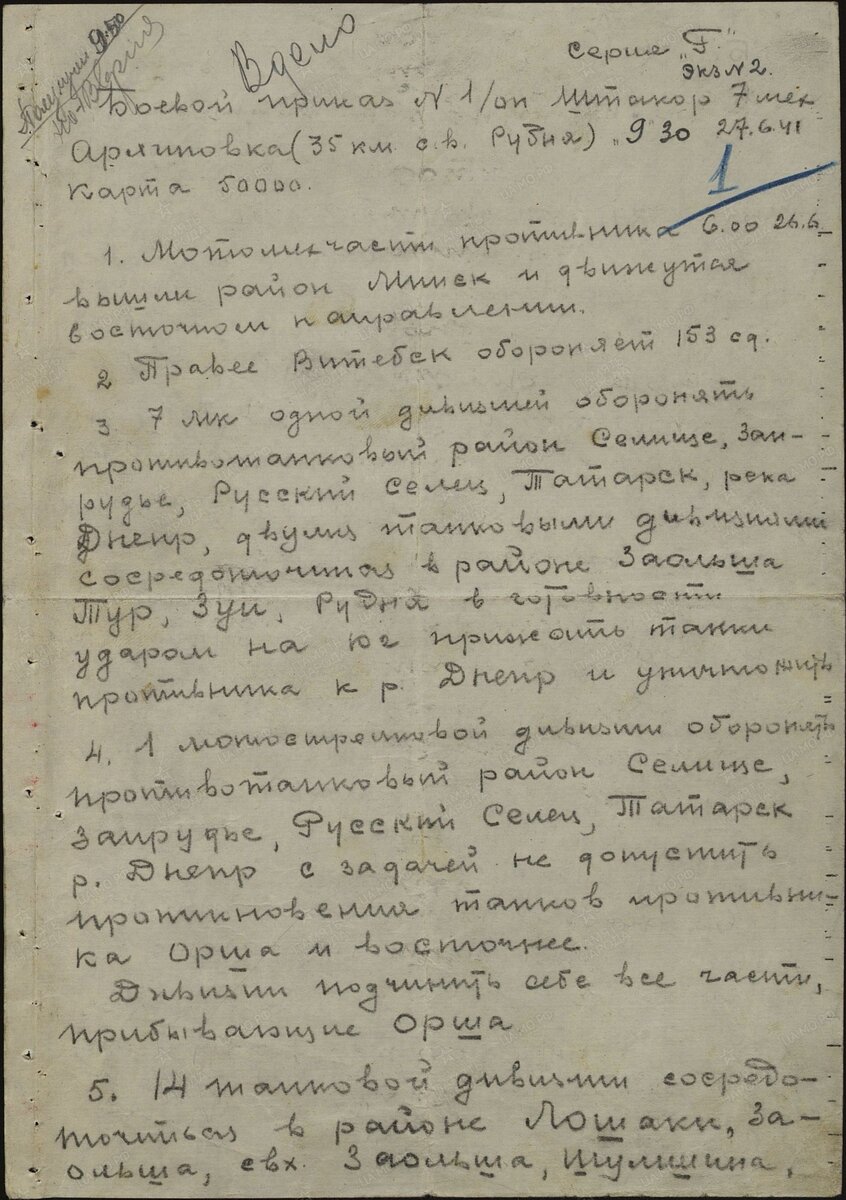 Вдело
серия "Г"
экз N 2.
Боевой приказ N 1/оп Штакор 7 мех
Арлиновка (35 км с.в. Рудня) 9 30 27.6.41
карта 50000.
1
1. Мотомехчасти противника 6.00 26.6
вышли район Минск и движутся
восточном направлении.
2 Правее Витебск обороняет 153 сд.
3 7 мк одной дивизией оборонять
противотанковый район Селище, Заи-
рудье, Русский Селец, Татарск, река
Днепр, двумя танковыми дивизиями
сосредоточиться в районе Заольша
Тур, Зуи, Рудня в готовности
ударом на юг прижать танки
противника к р. Днепр и уничтожить
4. 1 мотострелковой дивизии оборонять
противотанковый район Селище,
Заирудье, Русский Селец, Татарск
р. Днепр с задачей не допустить
проникновения танков противни-
ка Орша и восточнее.
Дивизии подчинить себе все части,
прибывающие Орша
5. 14 танковой дивизии сосредо-
точиться в районе Лошаки, За-
ольша, свх. Заольша, Шулишина,